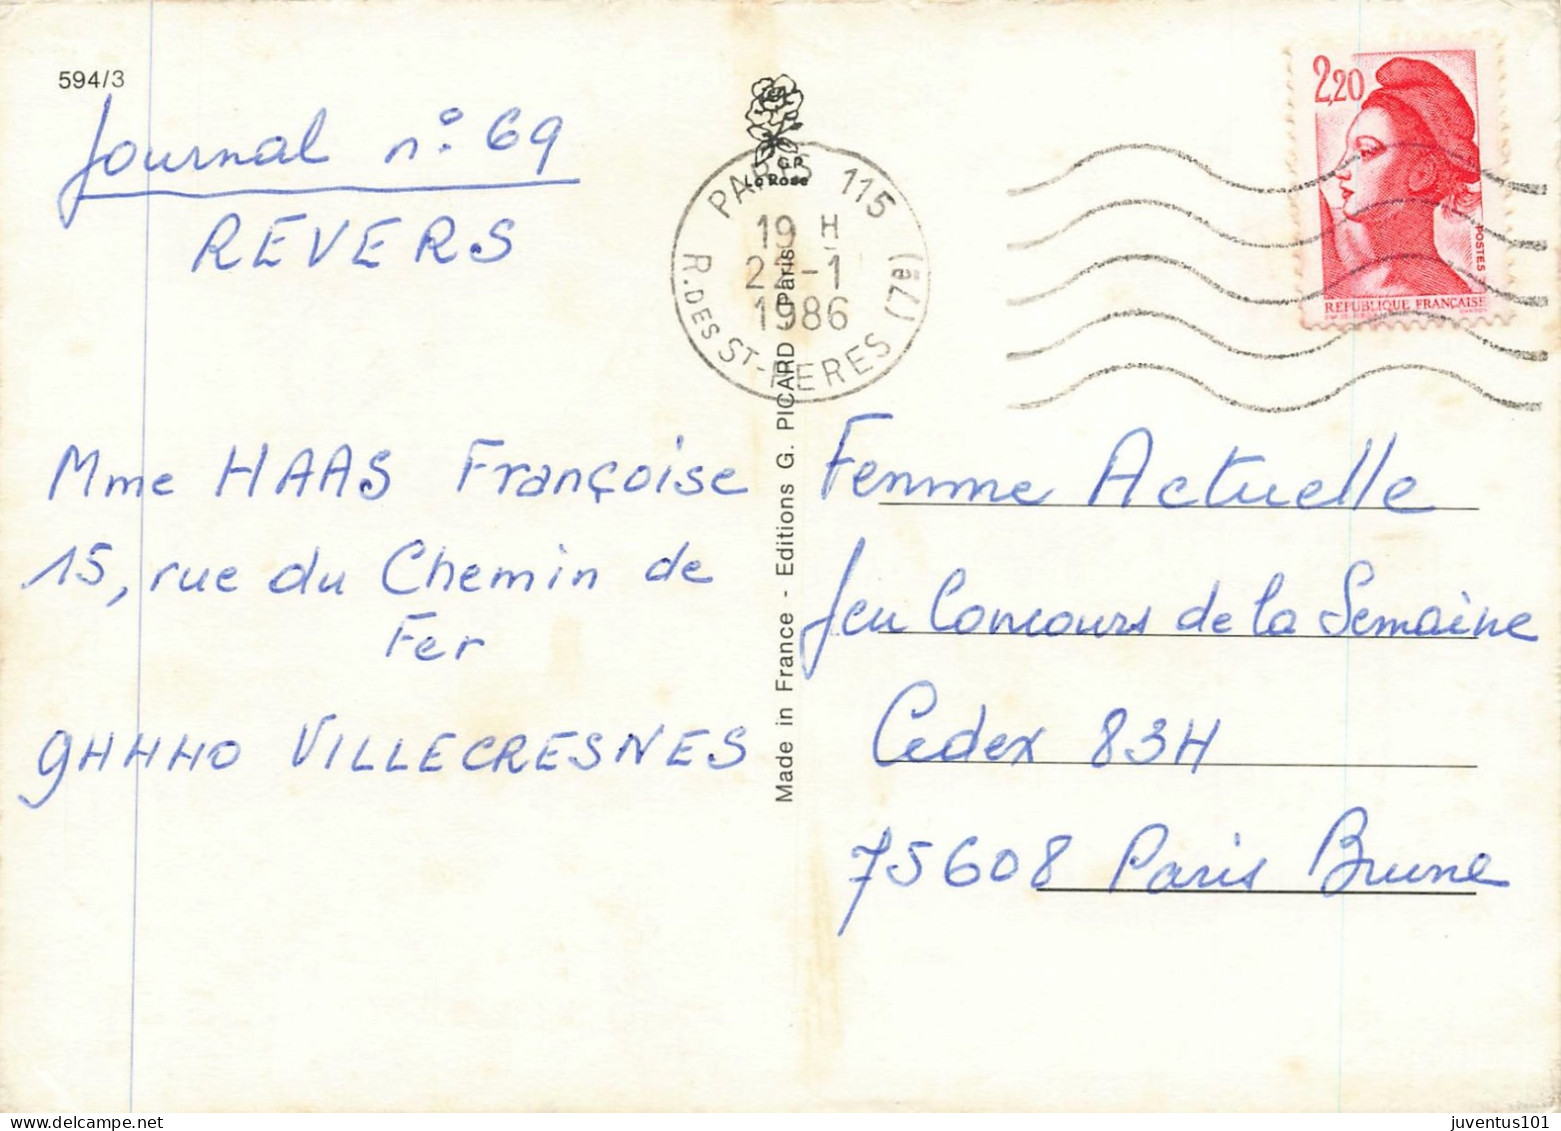 594/3
Journal n° 69
REVERS
Mme HAAS Françoise
15, rue du Chemin de
Fer
94440 VILLECRESNES
G.P.
La Rose
Made in France - Editions G. PICARD - Paris
PARIS 115 (7e)
19 H
22-1
1986
R. DES ST-PERES
2,20
POSTES
REPUBLIQUE FRANÇAISE
Femme Actuelle
Jeu Concours de la Semaine
Cedex 83H
75608 Paris Brune
juventus101